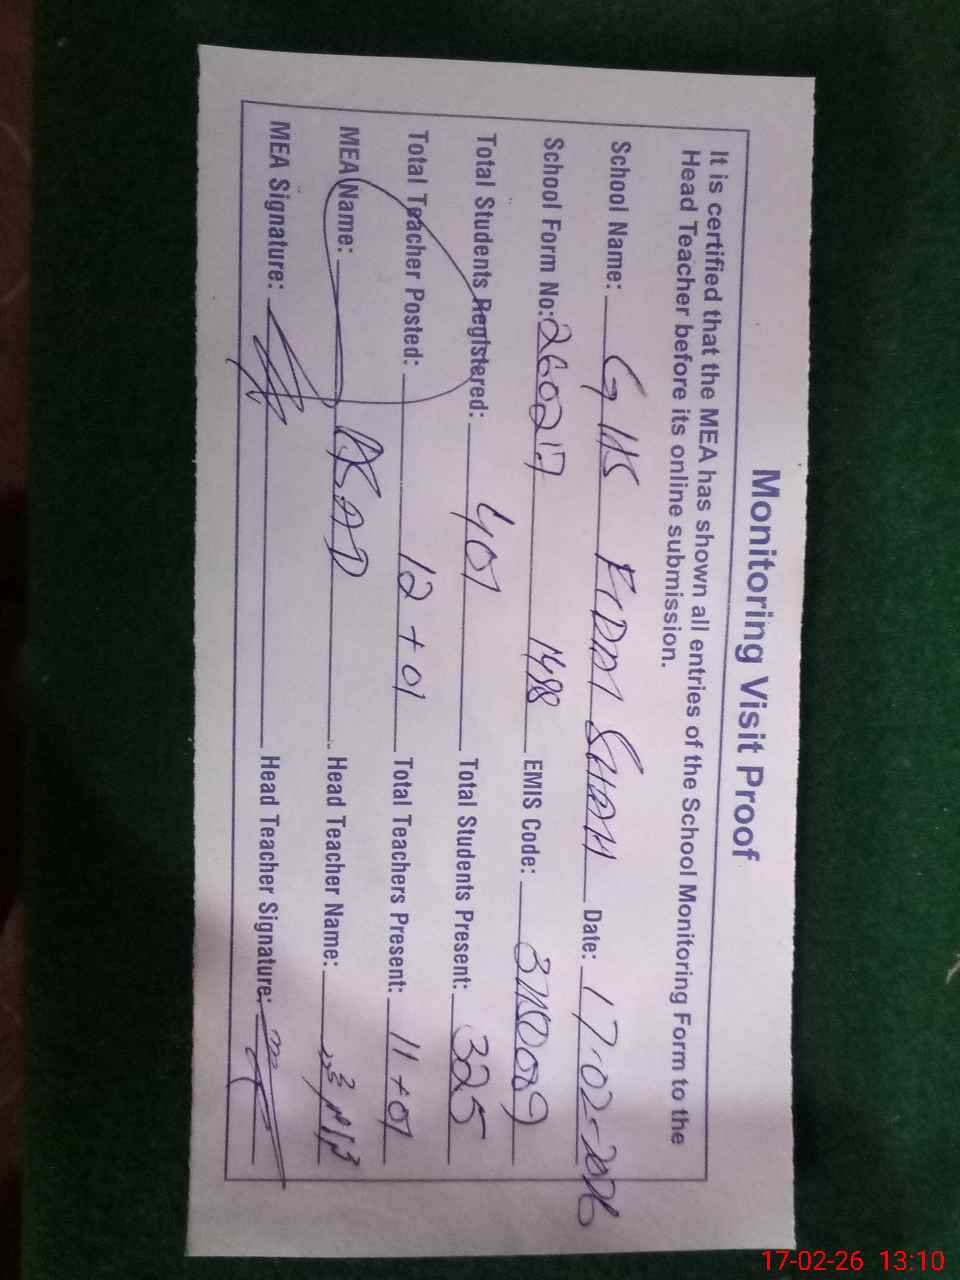 Monitoring Visit Proof
It is certified that the MEA has shown all entries of the School Monitoring Form to the
Head Teacher before its online submission.
School Name: GHS FIDDA SHAH Date: 17-02-2026
School Form No: 260217 1498 EMIS Code:
Total Students Registered: 401 Total Students Present: 325
Total Teacher Posted: 12 + 01 Total Teachers Present: 11 + 01
MEA Name: ASAD Head Teacher Name:
MEA Signature: Head Teacher Signature:
17-02-26 13:10